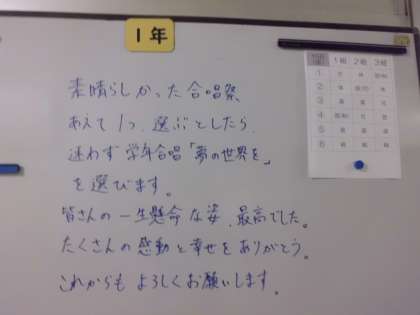 1年
素晴らしかった合唱祭
あえて1つ、選ぶとしたら、
迷わず学年合唱「夢の世界を」
を選びます。
皆さんの一生懸命な姿、最高でした。
たくさんの感動と幸せをありがとう。
これからもよろしくお願いします。
1組 2組 3組
1
2
3
4
5
6